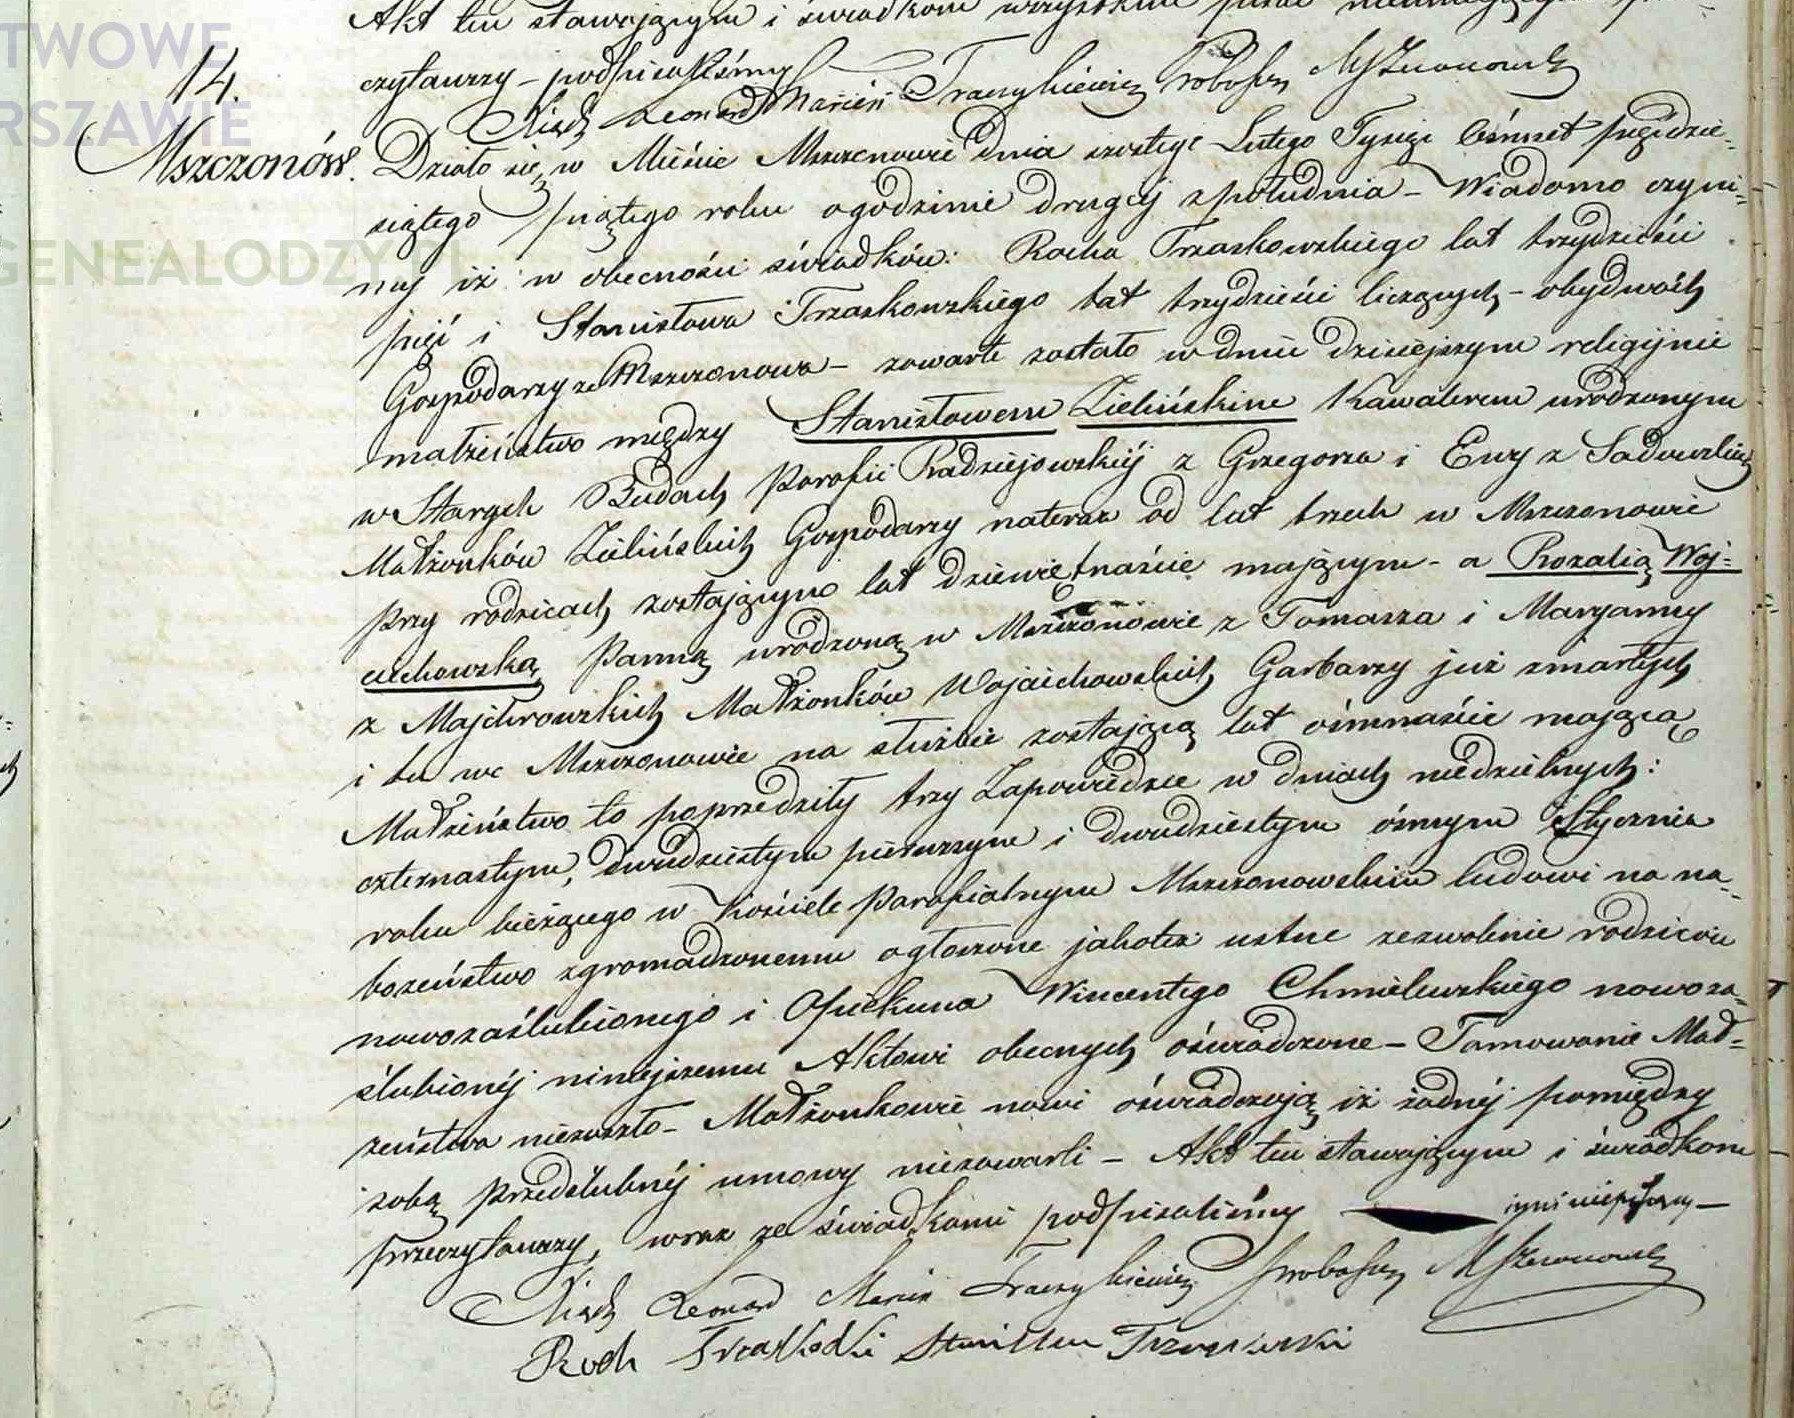 Akt ten stawającym i świadkom wszystkim pisać nieumiejącym
czytawszy – podpisaliśmy
Xiądz Leonard Marcin Traczykiewicz Proboszcz Mszczonowski
14.
Mszczonów.
Działo się w Mieście Mszczonowie dnia szóstego Lutego Tysiąc Ośmset pięćdzie-
siątego piątego roku o godzinie drugiej z południa – Wiadomo czyni-
my iż w obecności świadków: Rocha Trzaskowskiego lat trzydzieści
pięć i Stanisława Trzaskowskiego lat trzydzieści liczących – obydwóch
Gospodarzy ze Mszczonowa – zawarte zostało w dniu dzisiejszym religijnie
małżeństwo między Stanisławem Zielińskim Kawalerem urodzonym
w Starych Budach Parafii Radziejowskiéj z Grzegorza i Ewy z Sadowskich
Małżonków Zielińskich Gospodarzy nateraz od lat trzech w Mszczonowie
przy rodzicach zostającym lat dziewiętnaście mającym – a Rozalią Woj-
ciechowską Panną urodzoną w Mszczonowie z Tomasza i Maryanny
z Majchrowskich Małżonków Wojciechowskich Garbarzy już zmarłych
i tu we Mszczonowie na służbie zostającą lat ośmnaście mającą
Małżeństwo to poprzedziły trzy Zapowiedzie w dniach niedzielnych:
czternastym, dwudziestym pierwszym i dwudziestym ósmym Stycznia
roku bieżącego w Kościele Parafialnym Mszczonowskim ludowi na na-
bożeństwo zgromadzonemu ogłoszone jakoteż ustne zezwolenie rodziców
nowozaślubionego i Opiekuna Wincentego Chmielewskiego nowoza-
ślubionéj niniejszemu Aktowi obecnych oświadczone – Tamowanie Mał-
żeństwa niezaszło – Małżonkowie nowi oświadczają iż żadnéj pomiędzy
sobą przedślubnéj umowy niezawarli – Akt ten stawającym i świadkom
przeczytawszy, wraz ze świadkami podpisaliśmy inni niepiszą –
Xiądz Leonard Marcin Traczykiewicz Proboszcz Mszczonowski
Roch Trzaskoski Stanisław Trzaskoski
TWOWE
RSZAWIE
GENEALODZY.PL